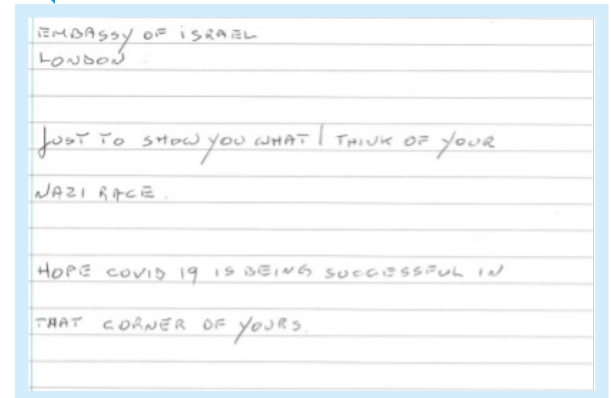 EMBASSY OF ISRAEL
LONDON
JUST TO SHOW YOU WHAT I THINK OF YOUR
NAZI RACE.
HOPE COVID 19 IS BEING SUCCESSFUL IN
THAT CORNER OF YOURS.